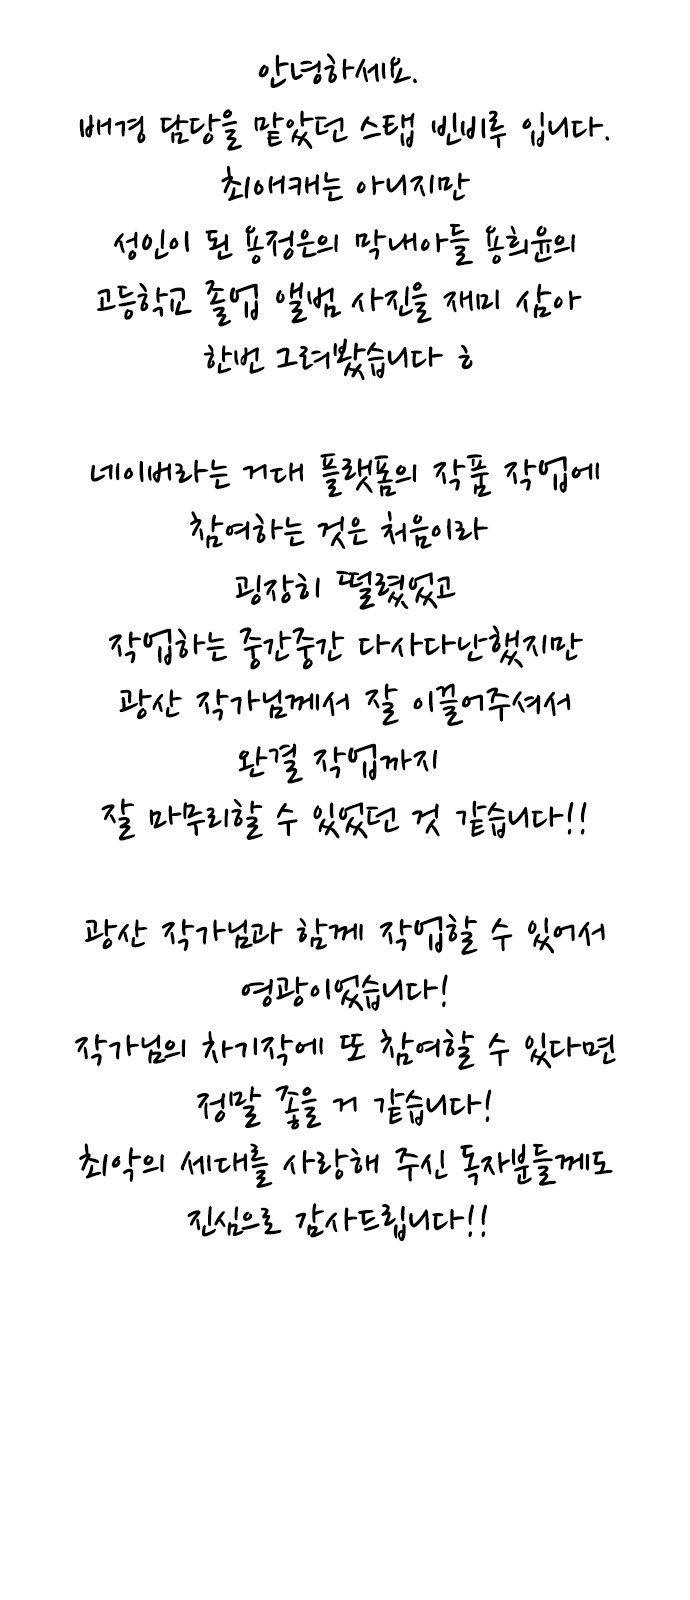 안녕하세요.
배경 담당을 맡았던 스탭 빈비루 입니다.
최애캐는 아니지만
성인이 된 용정은의 막내아들 용희윤의
고등학교 졸업 앨범 사진을 재미 삼아
한번 그려봤습니다 ㅎ
네이버라는 거대 플랫폼의 작품 작업에
참여하는 것은 처음이라
굉장히 떨렸었고
작업하는 중간중간 다사다난했지만
광산 작가님께서 잘 이끌어주셔서
완결 작업까지
잘 마무리할 수 있었던 것 같습니다!!
광산 작가님과 함께 작업할 수 있어서
영광이었습니다!
작가님의 차기작에 또 참여할 수 있다면
정말 좋을 거 같습니다!
최악의 세대를 사랑해 주신 독자분들께도
진심으로 감사드립니다!!